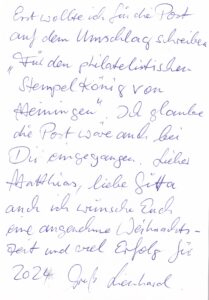 Erst wollte ich für die Post
auf dem Umschlag schreiben
„Für den philatelistischen
Stempelkönig von
Meiningen". Ich glaube
die Post wäre auch bei
Dir eingegangen. Liebe
Matthias, liebe Gitta
auch ich wünsche Euch
eine angenehme Weihnachts-
zeit und viel Erfolg für
2024. Gruß Lienhard